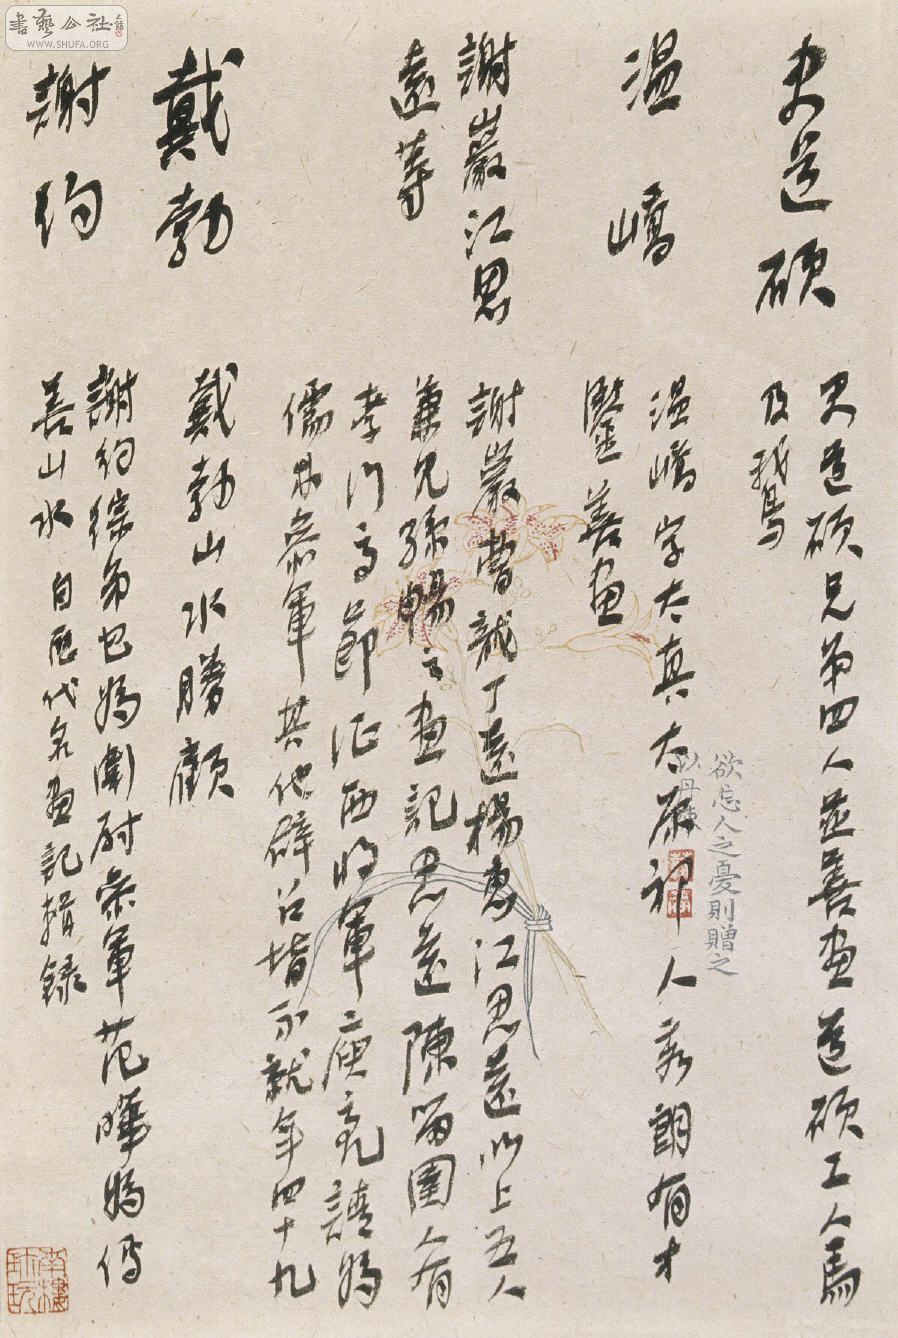 史道碩
史道碩兄弟四人並善畫道碩工人馬
及鵝鳥
温嶠
温嶠字太真太原祁人秀朗有才
鑒善畫
謝巖江思
遠等
謝巖曹龍丁遠楊惠江思遠以上五人
兼見孫暢之畫記思遠陳留圉人有
孝行高節征西將軍庾亮請為
儒林參軍其他辟召皆不就年四十九
戴勃
戴勃山水勝顧
謝約
謝約綜弟也為衛尉參軍范曄為傳
善山水 自歷代名畫記輯錄
欲忘人之憂則贈之
以丹棘
書藝公社
WWW.SHUFA.ORG